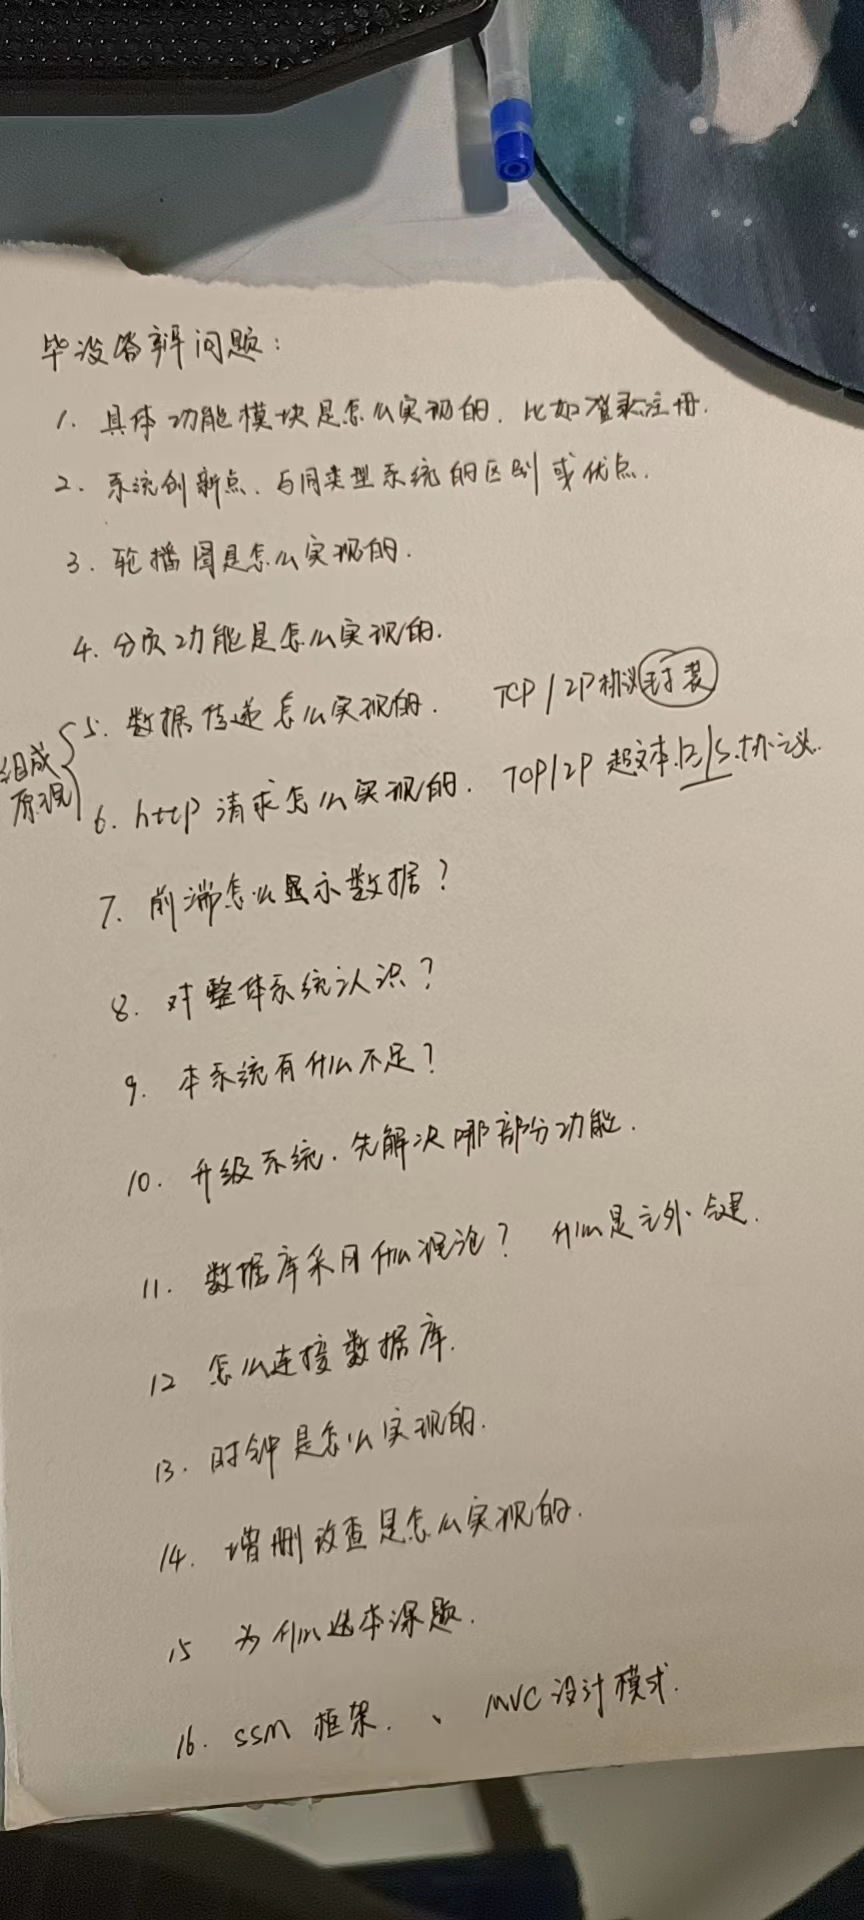 毕设答辩问题:
1. 具体功能模块是怎么实现的. 比如登录注册.
2. 系统创新点. 与同类型系统的区别或优点.
3. 轮播图是怎么实现的.
4. 分页功能是怎么实现的.
组成原理
5. 数据传递怎么实现的. TCP/IP协议封装
6. http请求怎么实现的. TCP/IP 超文本.B/S.协议.
7. 前端怎么显示数据?
8. 对整体系统认识?
9. 本系统有什么不足?
10. 升级系统. 先解决哪部分功能.
11. 数据库采用什么理论? 什么是主外键.
12 怎么连接数据库.
13. 时钟是怎么实现的.
14. 增删改查是怎么实现的.
15 为什么选本课题.
16. SSM 框架. 、 MVC设计模式.